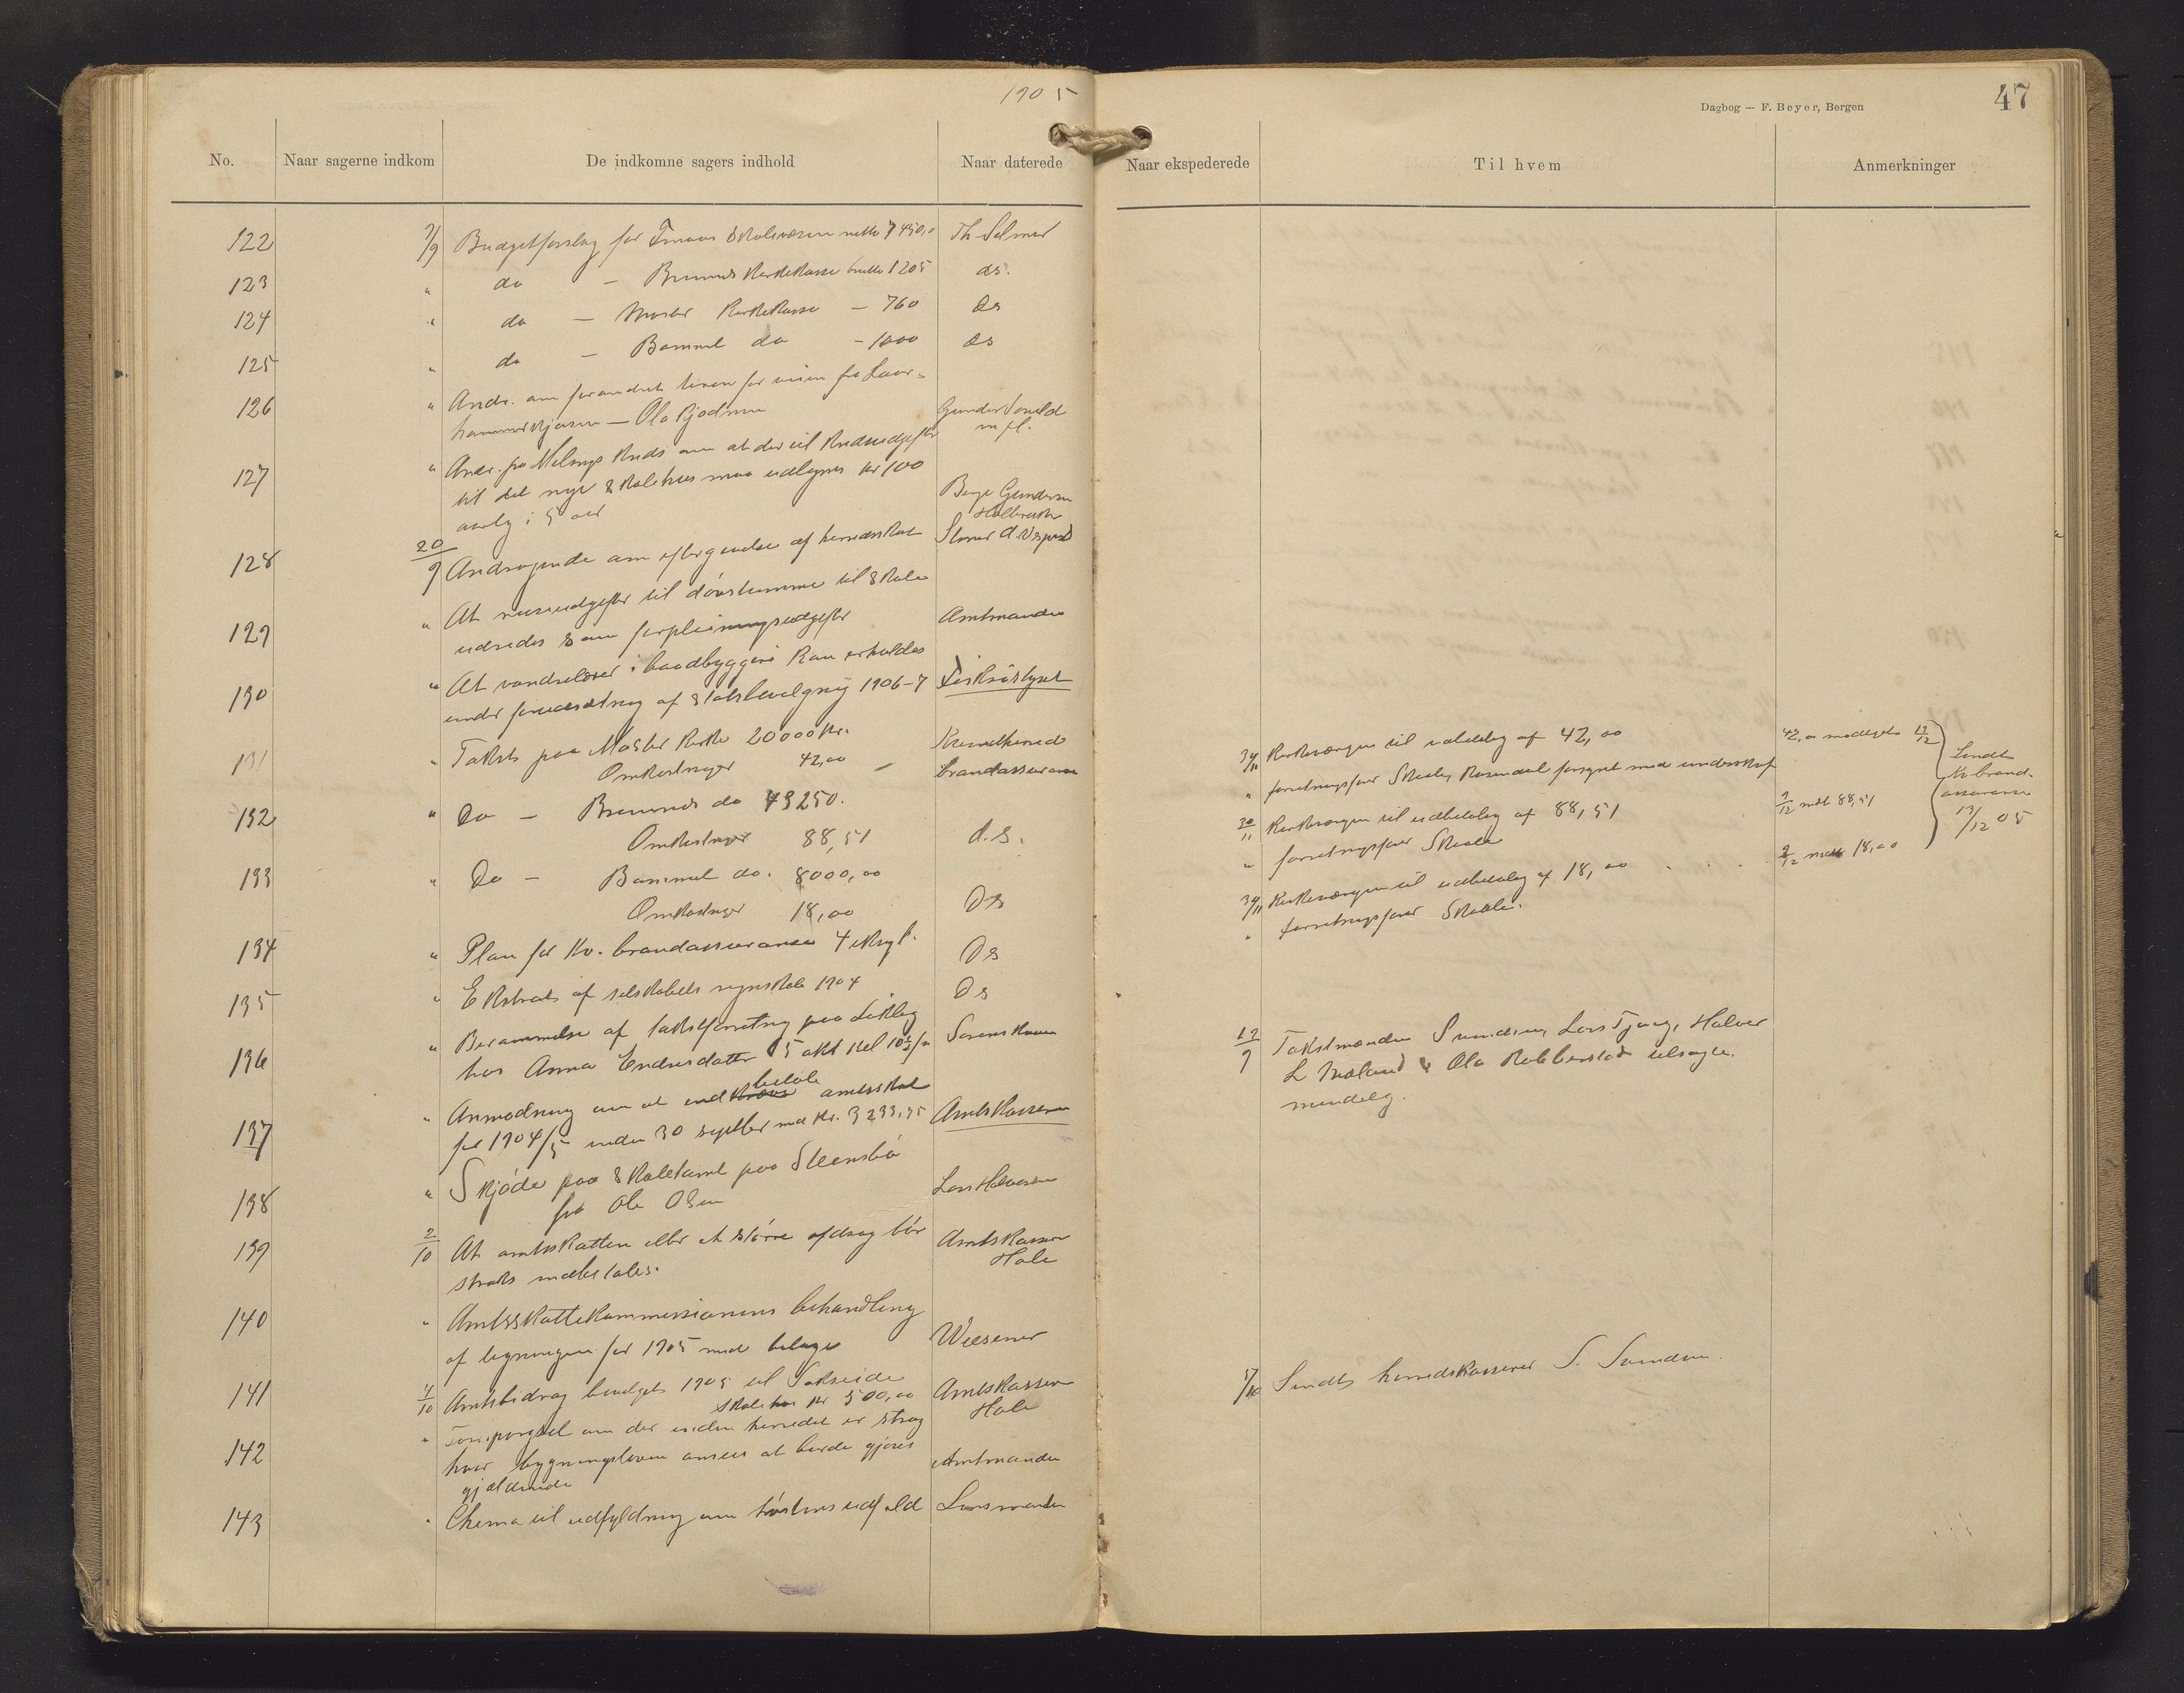 1905
Dagbog — F. Beyer, Bergen
47
No. Naar sagerne indkom De indkomne sagers indhold Naar daterede
Naar ekspederede Til hvem Anmerkninger
122 7/9 Budgetforslag for Finnaas Skolevæsen netto 7450,0 Th Selmer
123 " do — Bremnes Kirkekasse brutto 1205 ds.
124 " do — Moster Kirkekasse — 760 Ds
125 " do — Bømmel do — 1000 ds
126 " Andr. om forandret linen for veien fra
— Ola Kjødnun Gunder m fl.
127 " Andr. fra Melings Kreds om at der til Kredsudgifter
til det nye Skolehus maa udlignes kr 100
aarlig i 5 aar Berge Gundersen
128 20/9 Andragende om eftergivelse af herredsskat
129 " At reiseudgifter til døvstumme til Skole
udredes som forpleiningsudgifter Amtmanden
130 " At vandrelærer i baadbyggeri kan erholdes
under forudsætning af Statsbevilgning 1906-7 Fiskristyret
131 " Takst paa Moster Kirke 20000 kr.
Omkostninger 42,00 — brandassurance
132 " Do — Bremnes do 43250.
Omkostninger 88,51 d.s.
133 " Do — Bømmel do. 8000,00
Omkostninger 18,00 Ds
134 " Plan for Kv. brandassurance 4 expl. Ds
135 " Ekstrakt af selskabets regnskab 1904 Ds
136 " Berammelse af takstforretning paa
hos Anna Endresdatter 5 okt kel 10½ f m Sorenskriveren
137 " Anmodning om at indkræve betale amtsskat
for 1904/5 inden 30 septbr med kr. 3233,35 Amtskasseren
138 " Skjøde paa Skoletomt paa Steensbø
fra Ole Olsen Lars Halvorsen
139 2/10 At amtsskatten eller et større afdrag bør
straks indbetales. Amtskasserer
Hole
140 " Amtsskattekommissionens behandling
af ligningen for 1905 med bilage Wiesener
141 4/10 Amtsbidrag bevilget 1905 til
Skolehus kr 500,00 Amtskasserer
Hole
142 " Forespørgsel om der inden herredet er strøg
hvor bygningsloven ansees at burde gjøres
gjældende Amtmanden
143 " Chema til udfyldning om høstens udfald Lensmanden
30/11 Kirkeværgen til udbetaling af 42,00 42,00 modtget 12/12
" forretningsfører Skaale, Rosendal forsynet med underskrift
30/11 Kirkeværgen til udbetaling af 88,51 2/12 mdt 88,51
" forretningsfører Skaale
30/11 Kirkeværgen til udbetaling af 18,00 . . . 2/12 mdt 18,00
" forretningsfører Skaale.
Sendt
Kv brand-
assurance
13/12 05
22/9 Takstmænden Svendsen, Lars Tjong, Halvor
L Mæland & Ola Robberstad tilsagte.
mundelig.
5/10 Sendt herredskasserer S. Svendsen.